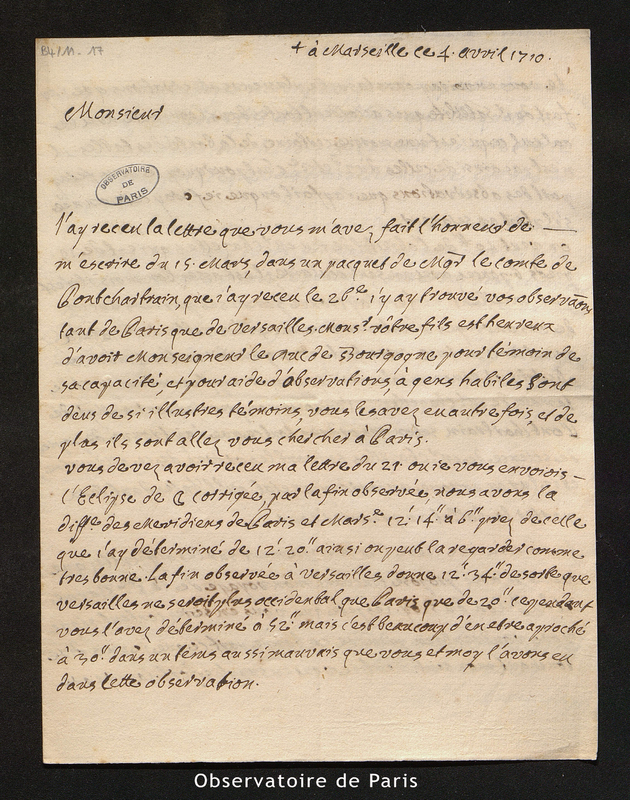 B4/11. 17
+ à Marseille ce 4. avril 1710.
Monsieur
OBSERVATOIRE
DE
PARIS
J'ay receu la lettre que vous m'avez fait l'honneur de
m'escrire du 15. Mars, dans un pacquet de Mgr le comte de
Pontchartrain, que i'ay receu le 26e. i'y ay trouvé vos observãons
tant de Paris que de Versailles. Monsr. vôtre fils est heureux
d'avoir Monseigneur le Duc de Bourgogne pour témoin de
sa capacité, et pour aide d'observations, à gens habiles sont
deus de si illustres témoins, vous les avez eu autre fois, et de
plus ils sont allez vous chercher à Paris.
vous devez avoir receu ma lettre du 21. ou ie vous envoiois
l'Eclipse de ☾ corrigée, par la fin observée, nous avons la
diffce. des Meridiens de Paris et Marse. 12'. 14" à 6" prez de celle
que i'ay déterminé de 12'. 20" ainsi on peut la regarder comme
tres bonne. La fin observée à Versailles donne 12'. 34" de sorte que
Versailles ne seroit plus occidental que Paris que de 20". cependant
vous l'avez déterminé à 52" mais c'est beaucoup d'en etre aproché
à 30" dans un tems aussi mauvais que vous et moy l'avons eu
dans cette observation.
Observatoire de Paris